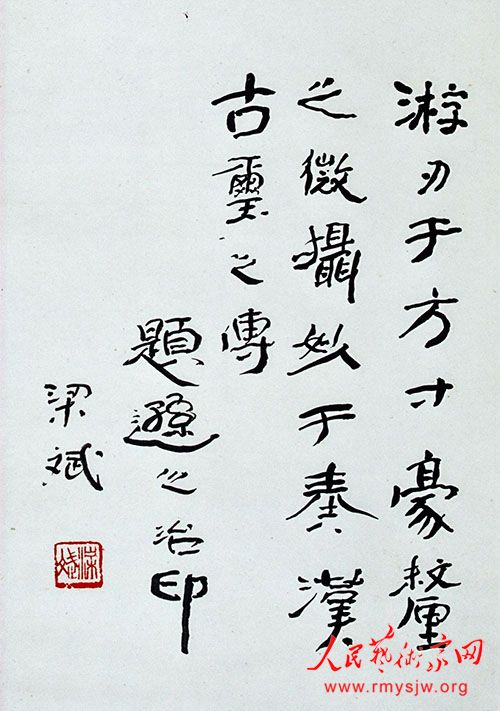 游刃于方寸豪釐
之微攝妙于秦漢
古璽之傳
題遜之治印
梁斌
梁斌
人民藝術家网
www.rmysjw.org